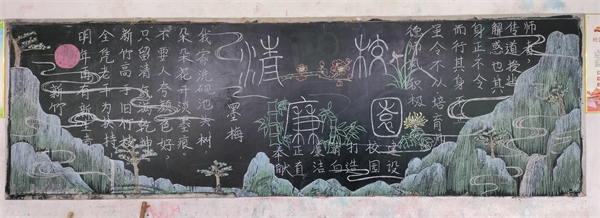 清校
廉园
师者，
传道授业
解惑也其
身正不令
而行其身
虽令不从培育师
德师风积极
建设
校园
打造
清白
廉洁
正直
奉献
墨梅
我家洗砚池头树
朵朵花开淡墨痕。
不要人夸颜色好
只留清气满乾坤
新竹
新竹高于旧竹枝
全凭老干为扶持
明年再有新生者